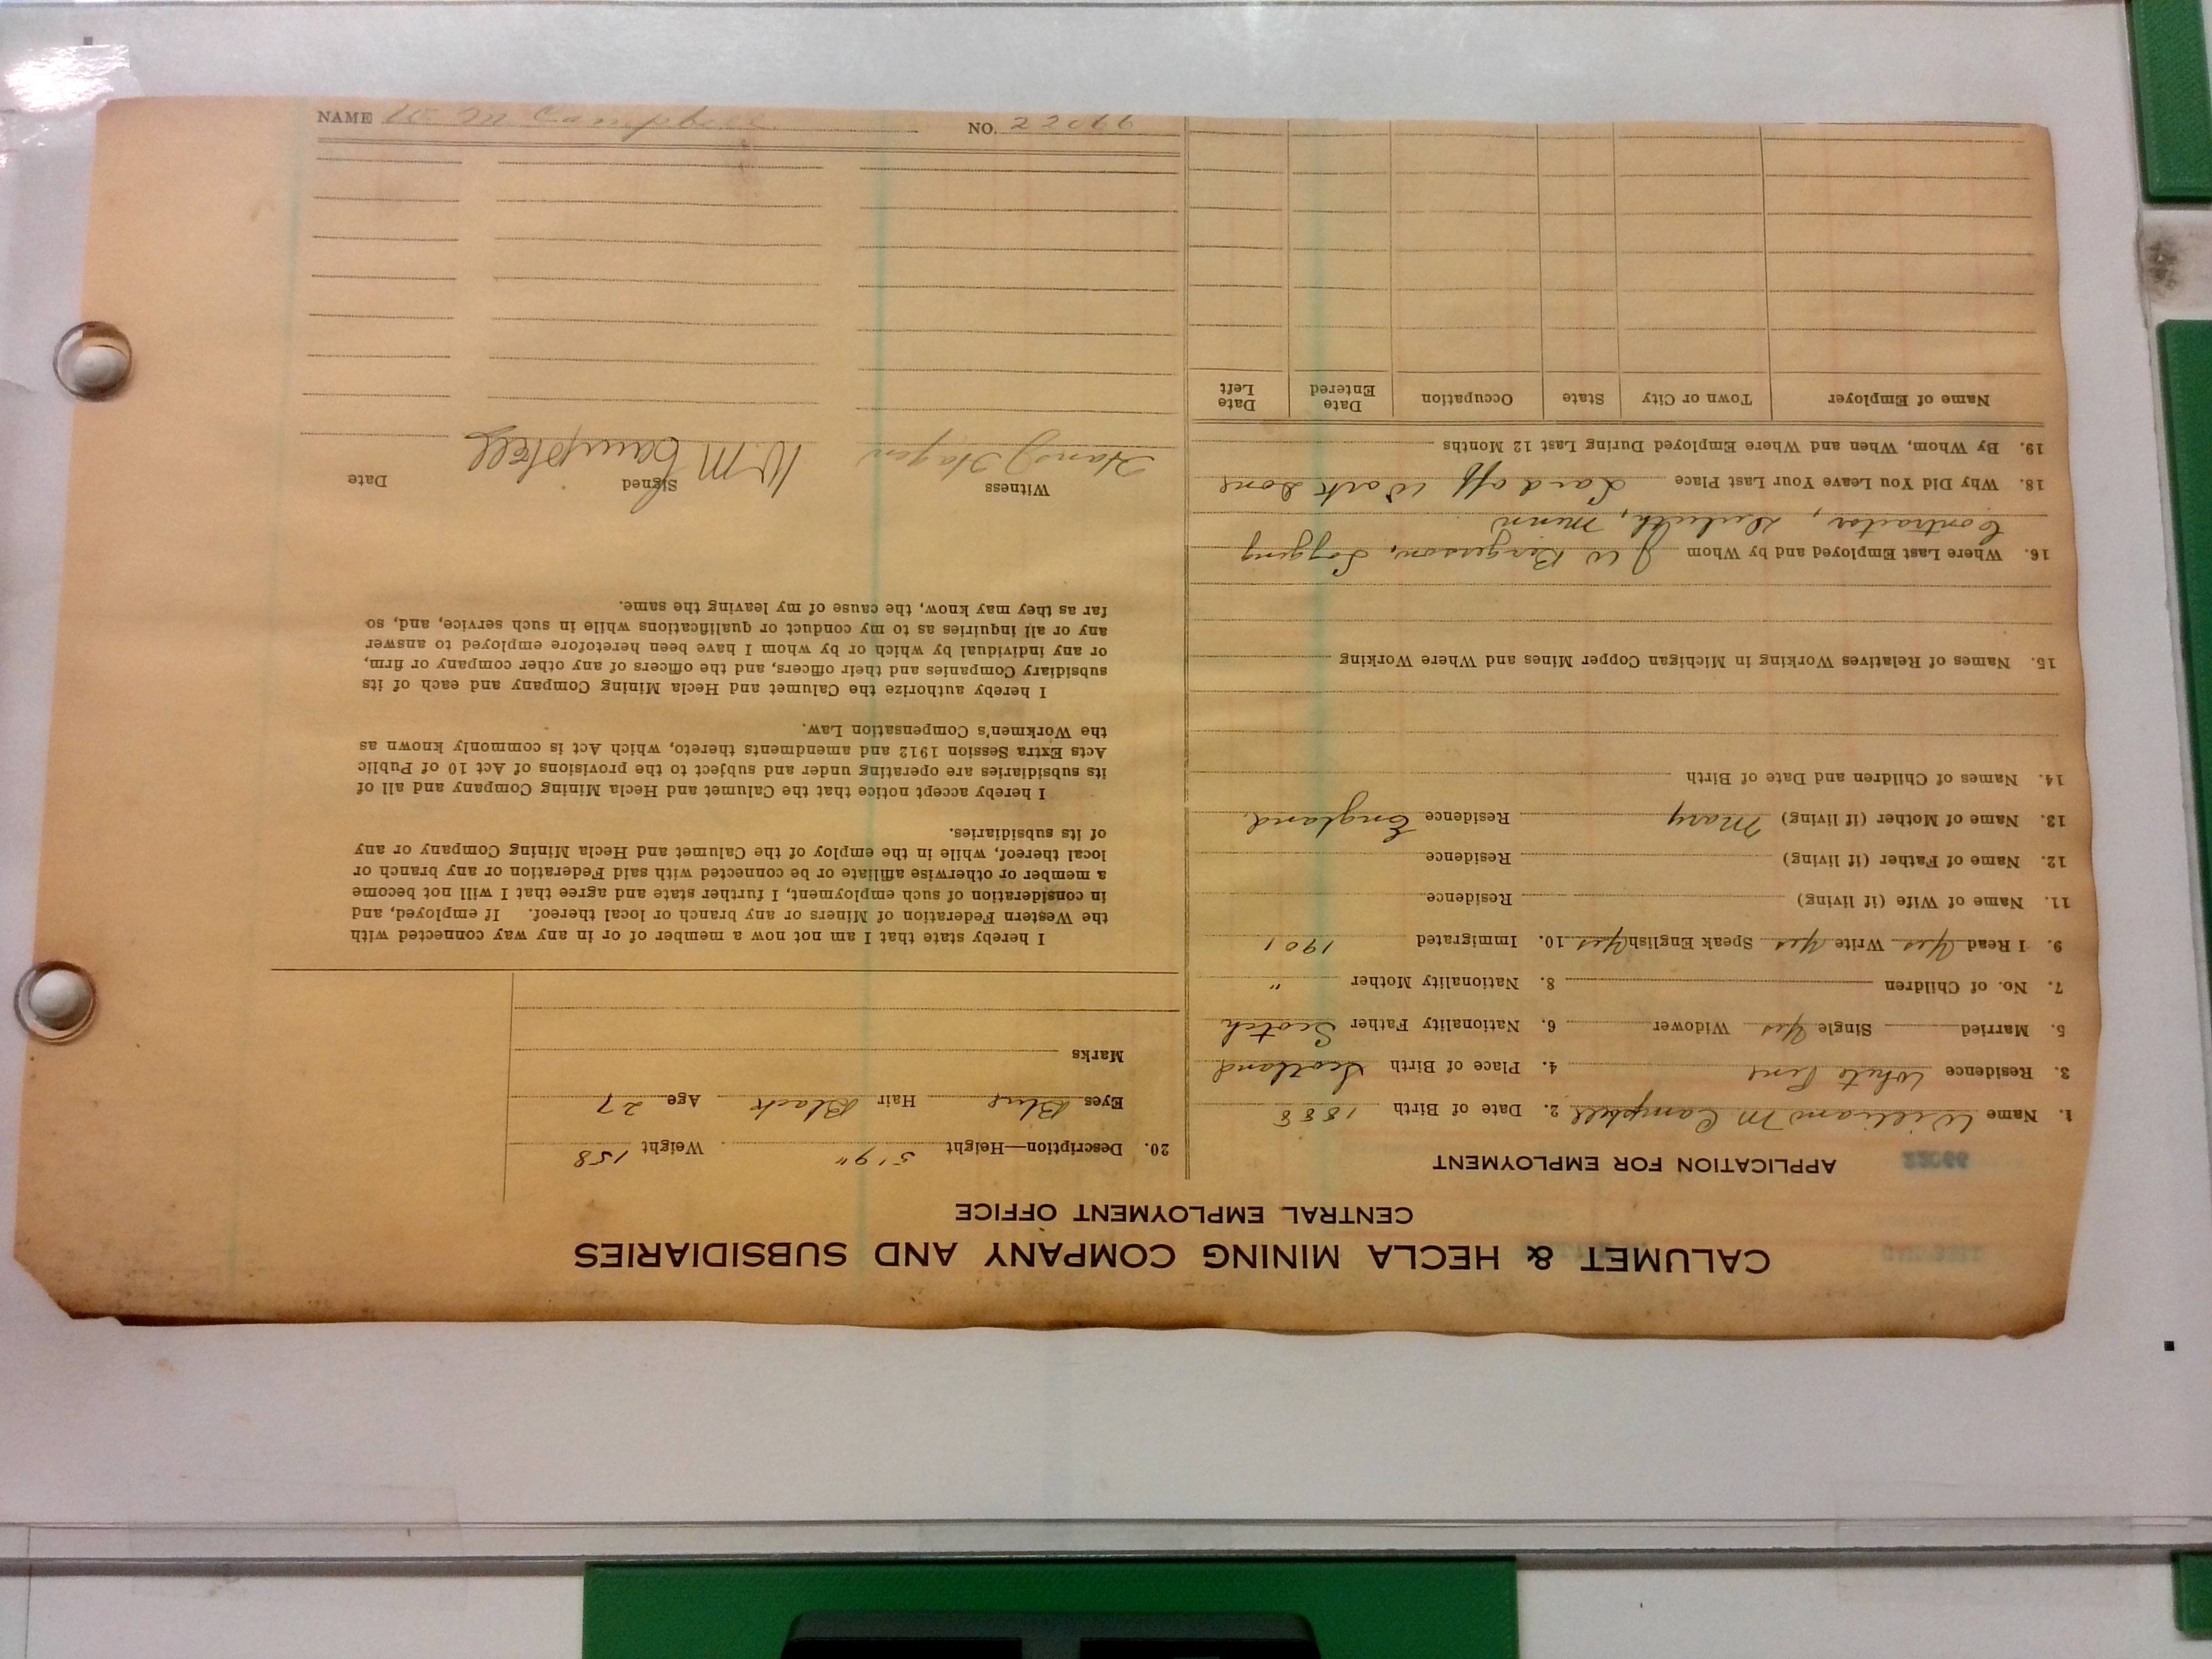 CALUMET & HECLA MINING COMPANY AND SUBSIDIARIES
CENTRAL EMPLOYMENT OFFICE
22066
APPLICATION FOR EMPLOYMENT
1. Name William M Campbell 2. Date of Birth 1888
3. Residence White Pine 4. Place of Birth Scotland
5. Married Single Yes Widower 6. Nationality Father Scotch
7. No. of Children 8. Nationality Mother "
9. I Read Yes Write Yes Speak English Yes 10. Immigrated 1901
11. Name of Wife (if living) Residence
12. Name of Father (if living) Residence
13. Name of Mother (if living) Mary Residence England
14. Names of Children and Date of Birth
15. Names of Relatives Working in Michigan Copper Mines and Where Working
16. Where Last Employed and by Whom J W Logging
Contractor, Duluth, Minn
18. Why Did You Leave Your Last Place Laid off Work Done
19. By Whom, When and Where Employed During Last 12 Months
Name of Employer Town or City State Occupation Date Entered Date Left
20. Description—Height 5'9" Weight 158
Eyes Blue Hair Black Age 27
Marks
I hereby state that I am not now a member of or in any way connected with
the Western Federation of Miners or any branch or local thereof. If employed, and
in consideration of such employment, I further state and agree that I will not become
a member or otherwise affiliate or be connected with said Federation or any branch or
local thereof, while in the employ of the Calumet and Hecla Mining Company or any
of its subsidiaries.
I hereby accept notice that the Calumet and Hecla Mining Company and all of
its subsidiaries are operating under and subject to the provisions of Act 10 of Public
Acts Extra Session 1912 and amendments thereto, which Act is commonly known as
the Workmen's Compensation Law.
I hereby authorize the Calumet and Hecla Mining Company and each of its
subsidiary Companies and their officers, and the officers of any other company or firm,
or any individual by which or by whom I have been heretofore employed to answer
any or all inquiries as to my conduct or qualifications while in such service, and, so
far as they may know, the cause of my leaving the same.
Witness Signed Date
Hagen W M Campbell
NAME W. M Campbell NO. 22066